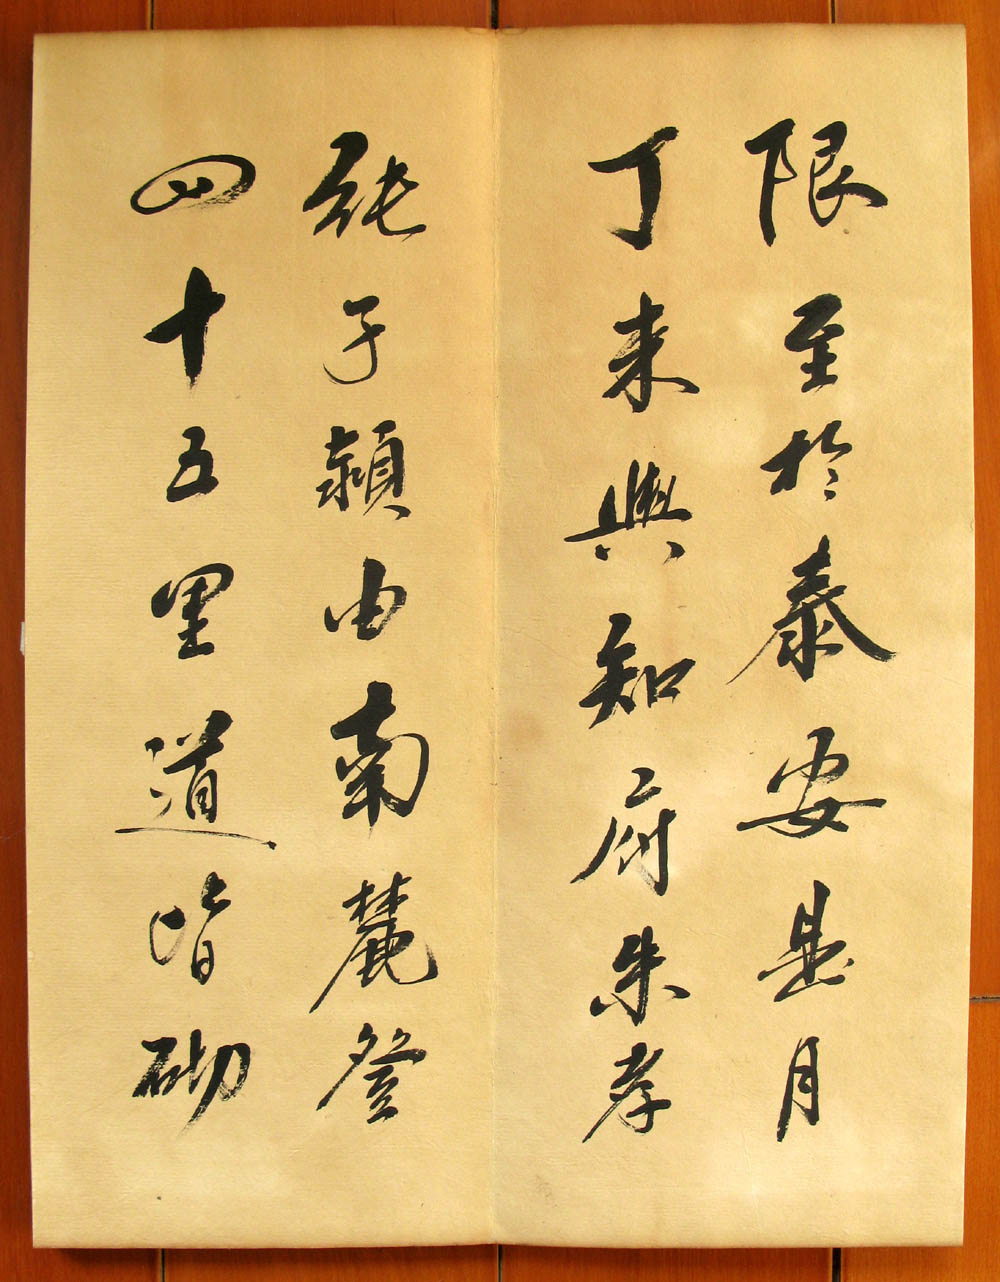 限至於泰安是月
丁未與知府朱孝
純子潁由南麓登
四十五里道皆砌